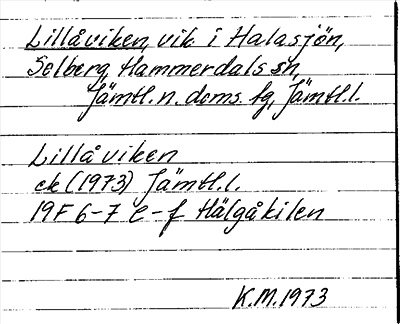 Lillåviken, vik i Halasjön,
Solberg, Hammerdals sn,
Jämtl. n. doms. tg, Jämtl. l.
Lillåviken
ek (1973) Jämtl. l.
19F 6-7 e-f Hälgåkilen
K.M. 1973